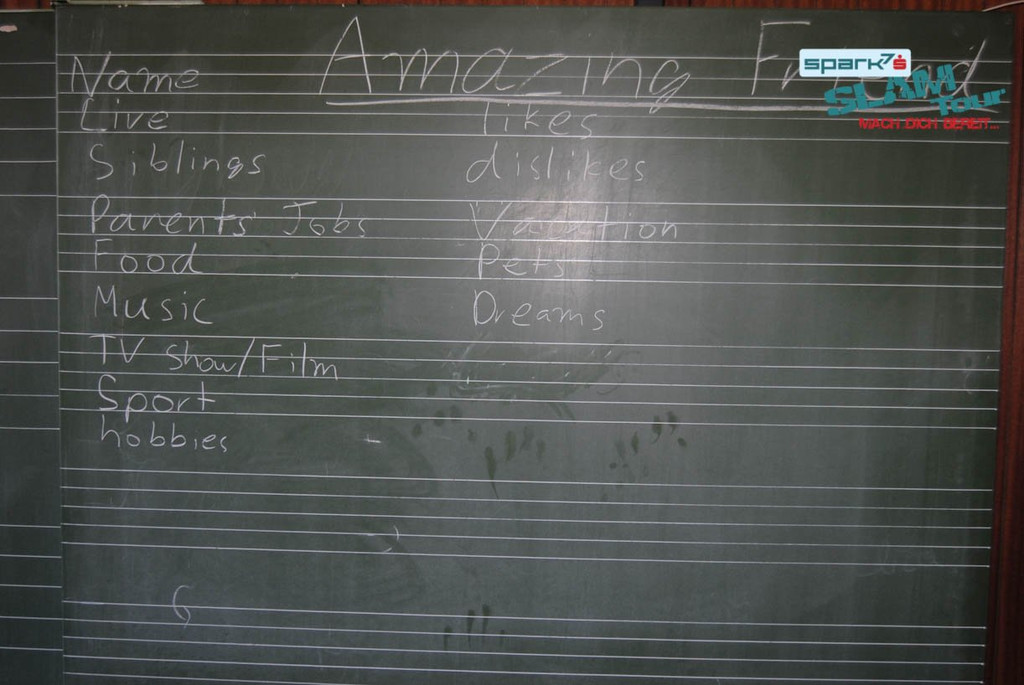 Amazing Friend
Name
Live
Siblings
Parents' Jobs
Food
Music
TV show/Film
Sport
hobbies
likes
dislikes
Vacation
Pets
Dreams
spark7
SLAM!
TOUR
MACH DICH BEREIT...